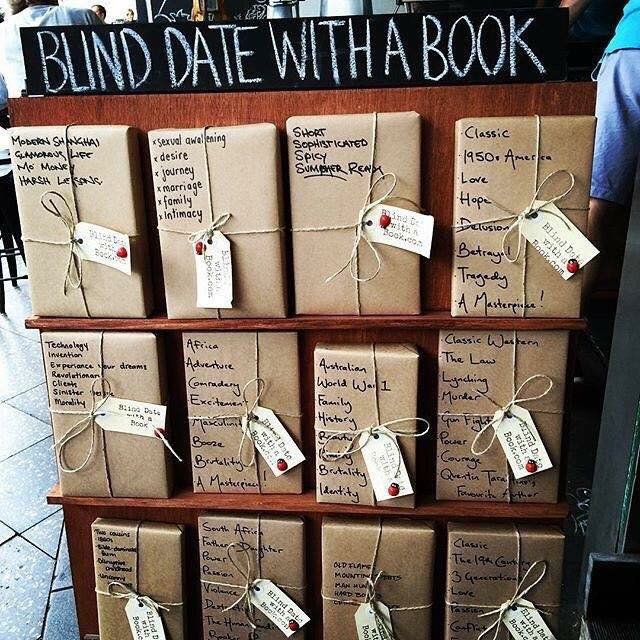 BLIND DATE WITH A BOOK
MODERN SHANGHAI
GLAMOROUS LIFE
MO MONEY
HARSH LESSONS
Blind Date
with a
Book.com
x sexual awakening
x desire
x journey
x marriage
x family
x intimacy
Blind Date
with a
Book.com
SHORT
SOPHISTICATED
SPICY
SUMMER READ
Blind Date
with a
Book.com
Classic
1950s America
Love
Hope
Delusion
Betrayal
Tragedy
A Masterpiece!
Blind Date
with a
Book
Technology
Invention
Experience your dreams
Revolutionary
Clients
Sinister
Morality
Blind Date
with a
Book
Africa
Adventure
Comradery
Excitement
Masculinity
Booze
Brutality
A Masterpiece
Blind Date
with a
Book
Australian
World War 1
Family
History
Brutality
Identity
Blind Date
with a
Book
Classic Western
The Law
Lynching
Murder
Gun Fight
Power
Courage
Quentin Tarantino's
Favourite Author
Blind Date
with a
Book
Two cousins
Disruptive
childhood
Blind Date
with a
Book
South Africa
Father Daughter
Power
Passion
Violence
The Human
Blind Date
with a
Book
OLD FLAME
MAN HUNT
Blind Date
with a
Book
Classic
The 19th Century
3 Generations
Love
Passion
Conflict
Blind Date
with a
Book